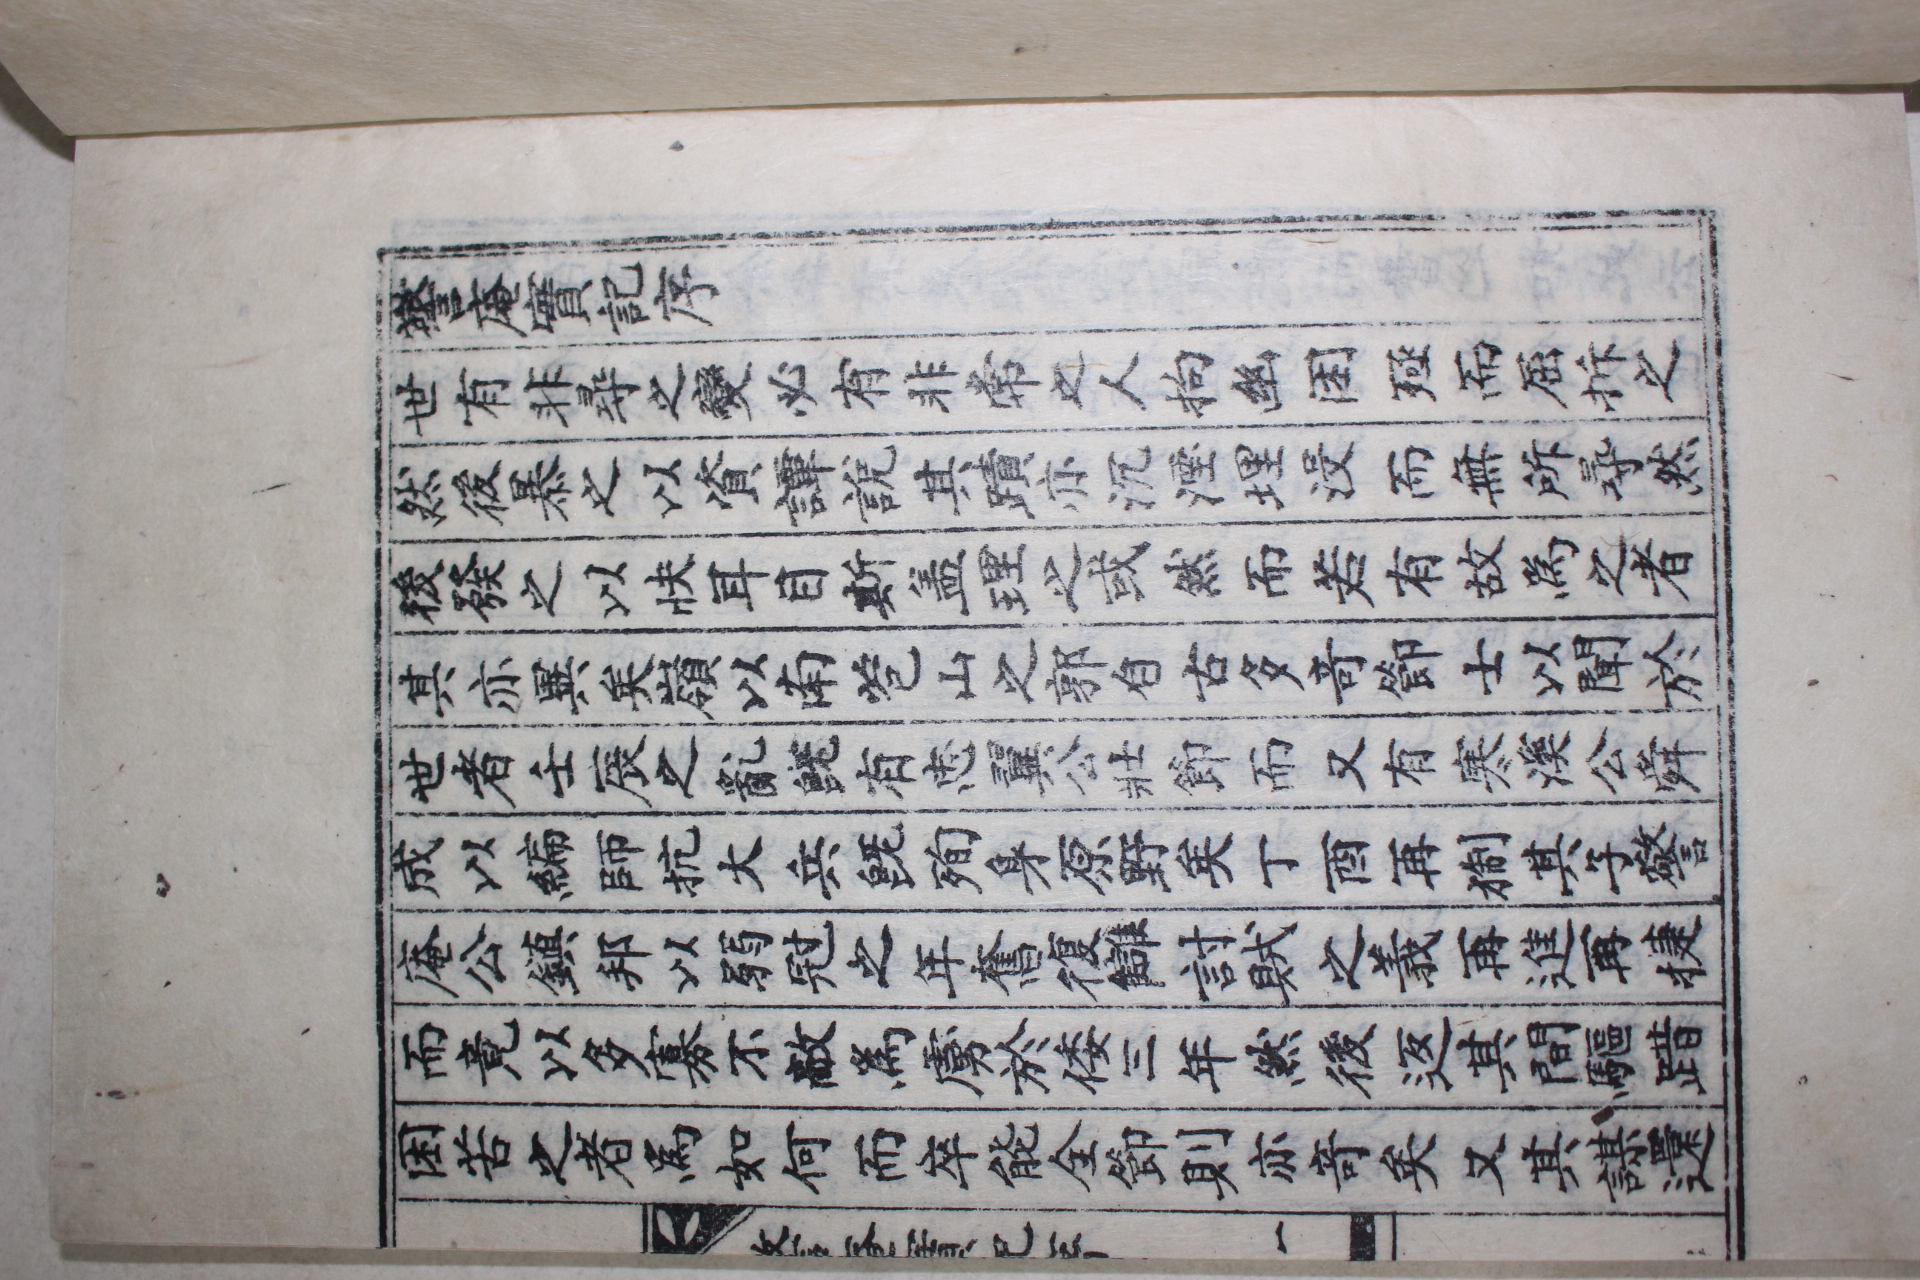 警庵實記序
世有非尋之變必有非常之人拘幽困殛而屈拆之
然後暴之以資譚說其蹟亦沉湮埋沒而無所尋然
後發之以快耳目斯盖理之或然而若有故爲之者
其亦異矣嶺以南苞山之郭自古多竒節士以聞於
世者壬辰之亂旣有忠翼公壯節而又有寒溪公舜
成以編師抗大兵旣殉身原野矣丁酉再猘其子警
庵公鎮邦以弱冠之年奮復讎討賊之義再進再捷
而竟以多寡不敵爲虜於倭三年然後返其間驅踖
困苦之者爲如何而卒能全節則亦竒矣又其謀還
警庵實記序
一